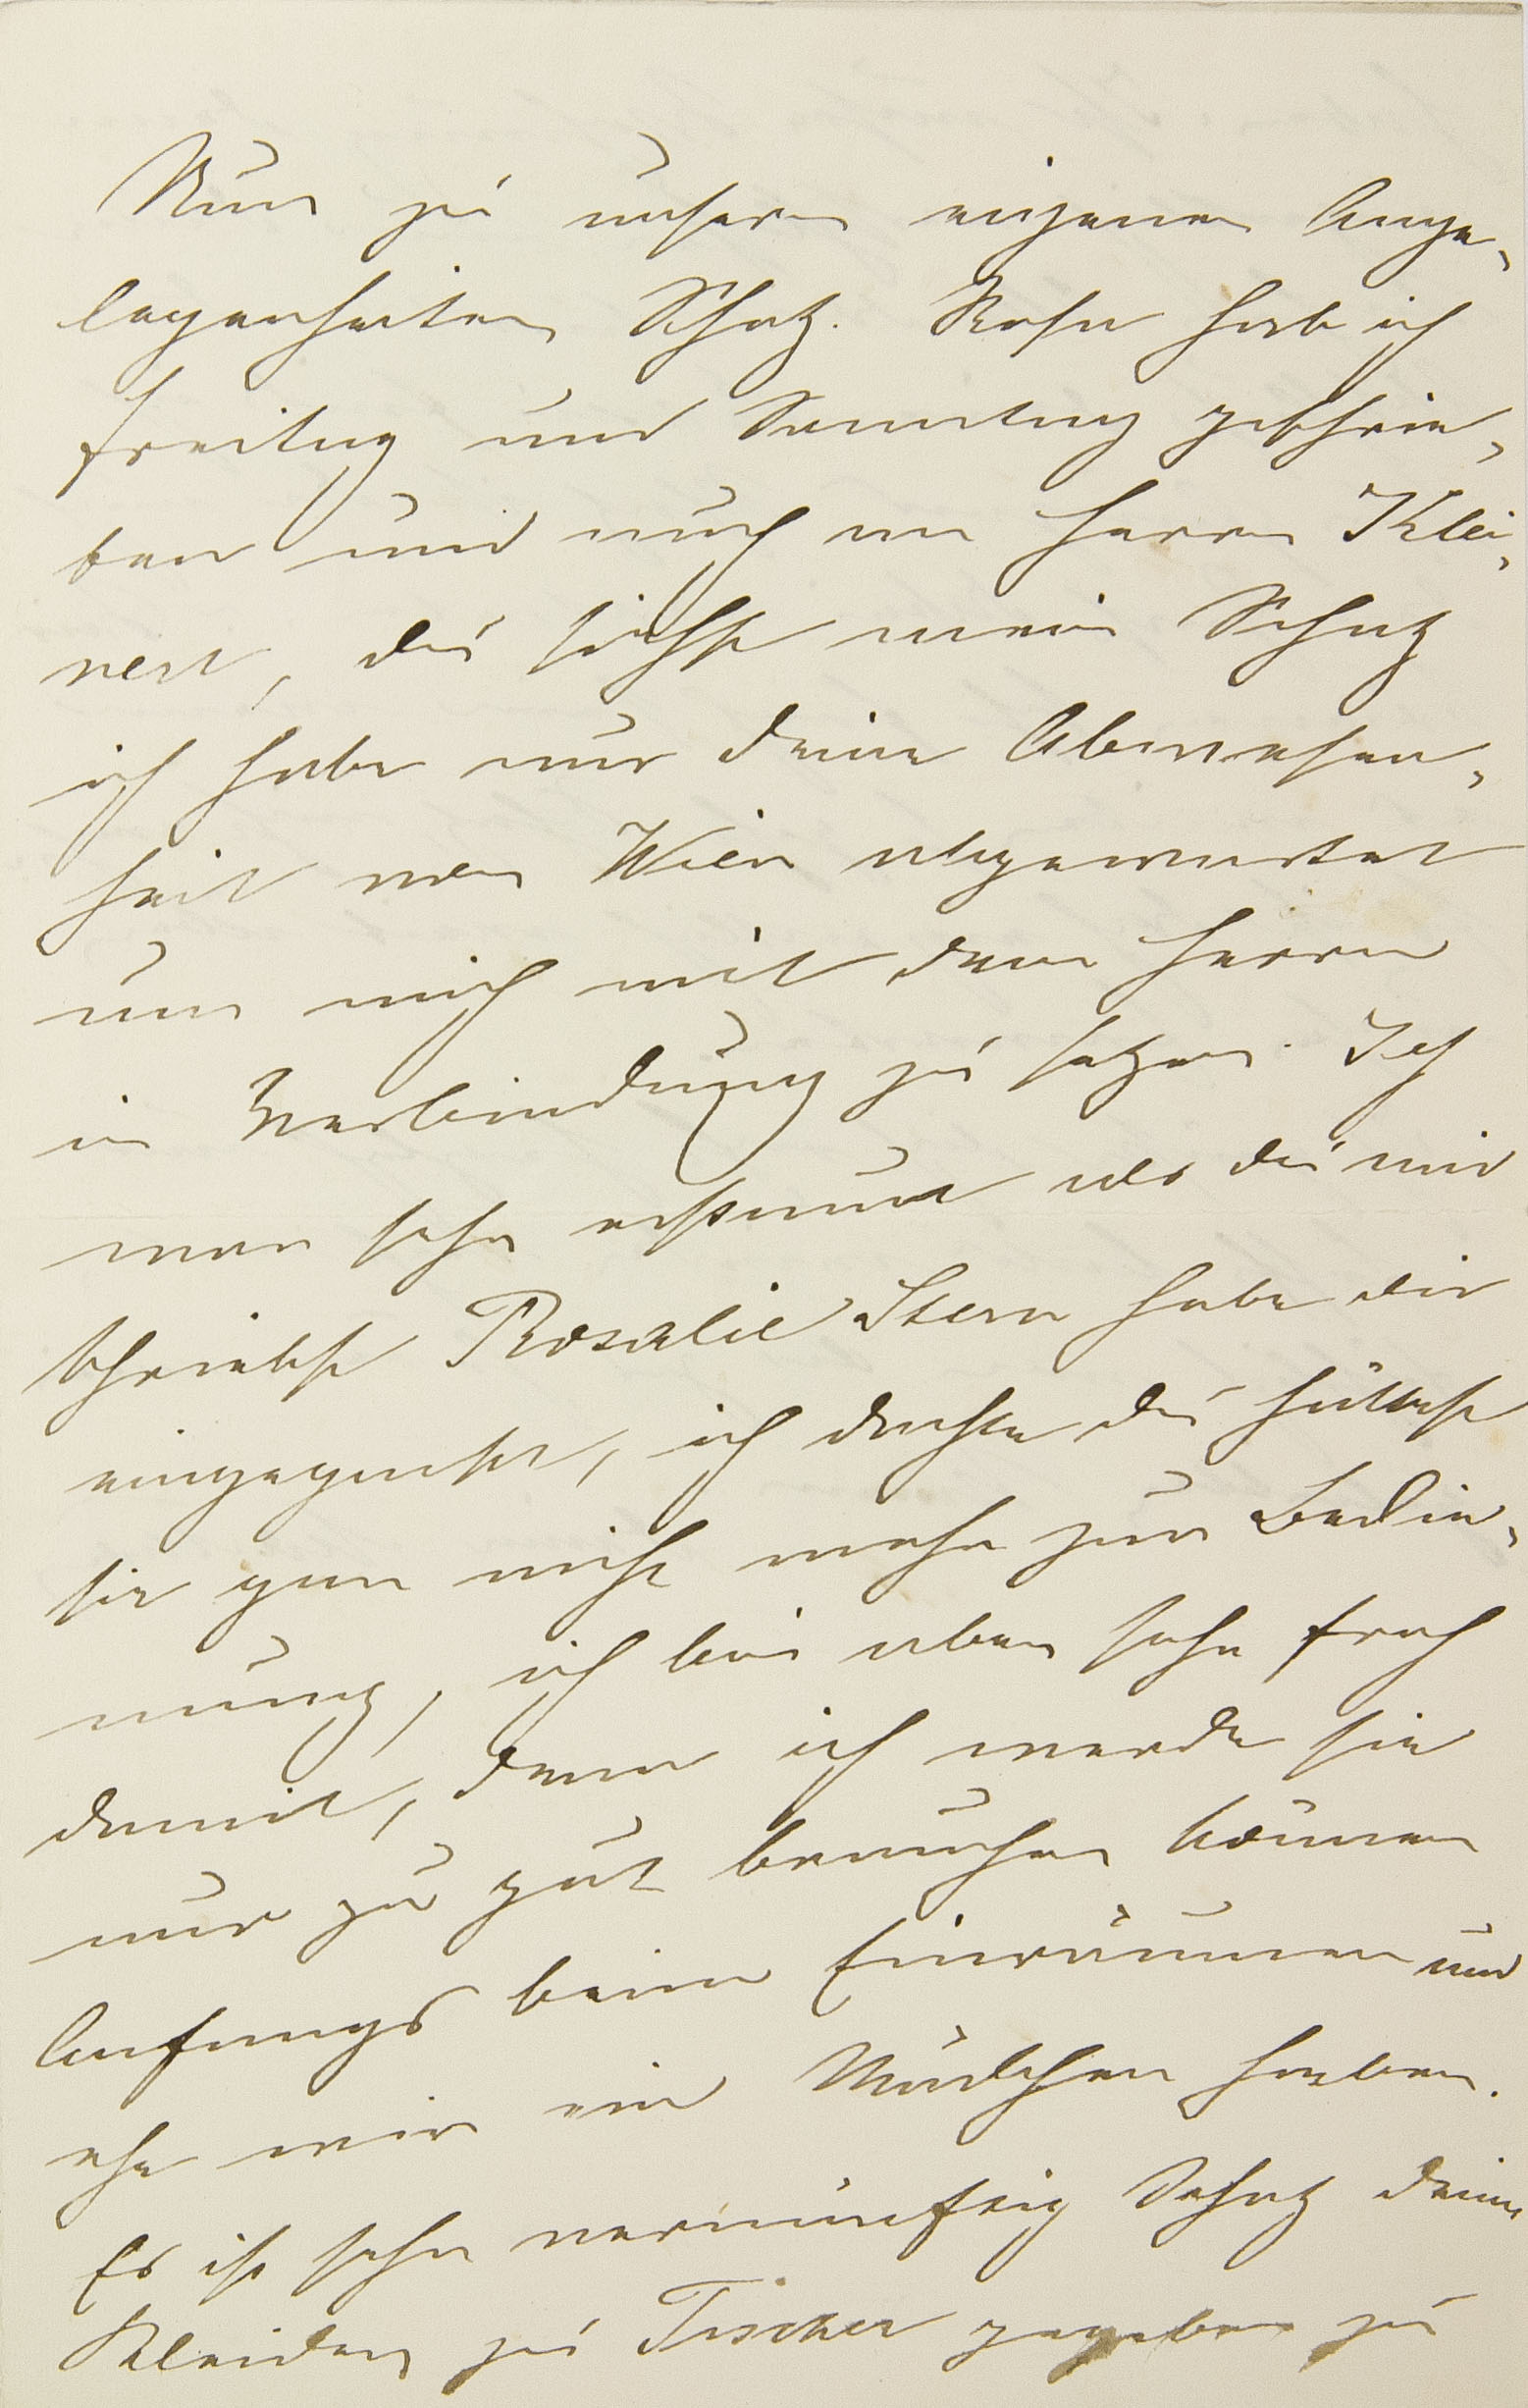 Nun zu unseren eigenen Ange-
legenheiten Schatz. Rosa hab ich
Freitag und Sonntag geschrie-
ben und auch an Herrn Klei-
nert, du siehst mein Schatz
ich habe nur deine Abwesen-
heit von Wien abgewartet
um mich mit dem Herrn
in Verbindung zu setzen. Ich
war sehr erstaunt als du mir
schriebst Rosalie Stern habe dir
eingepackt, ich dachte du hättest
sie gar nicht mehr zur Bedie-
nung, ich bin aber sehr froh
damit, denn ich werde sie
nur zu gut brauchen können
Anfangs beim Einräumen und
ehe wir ein Mädchen haben.
Es ist sehr vernünftig Schatz deine
Kleider zu Tischer gegeben zu